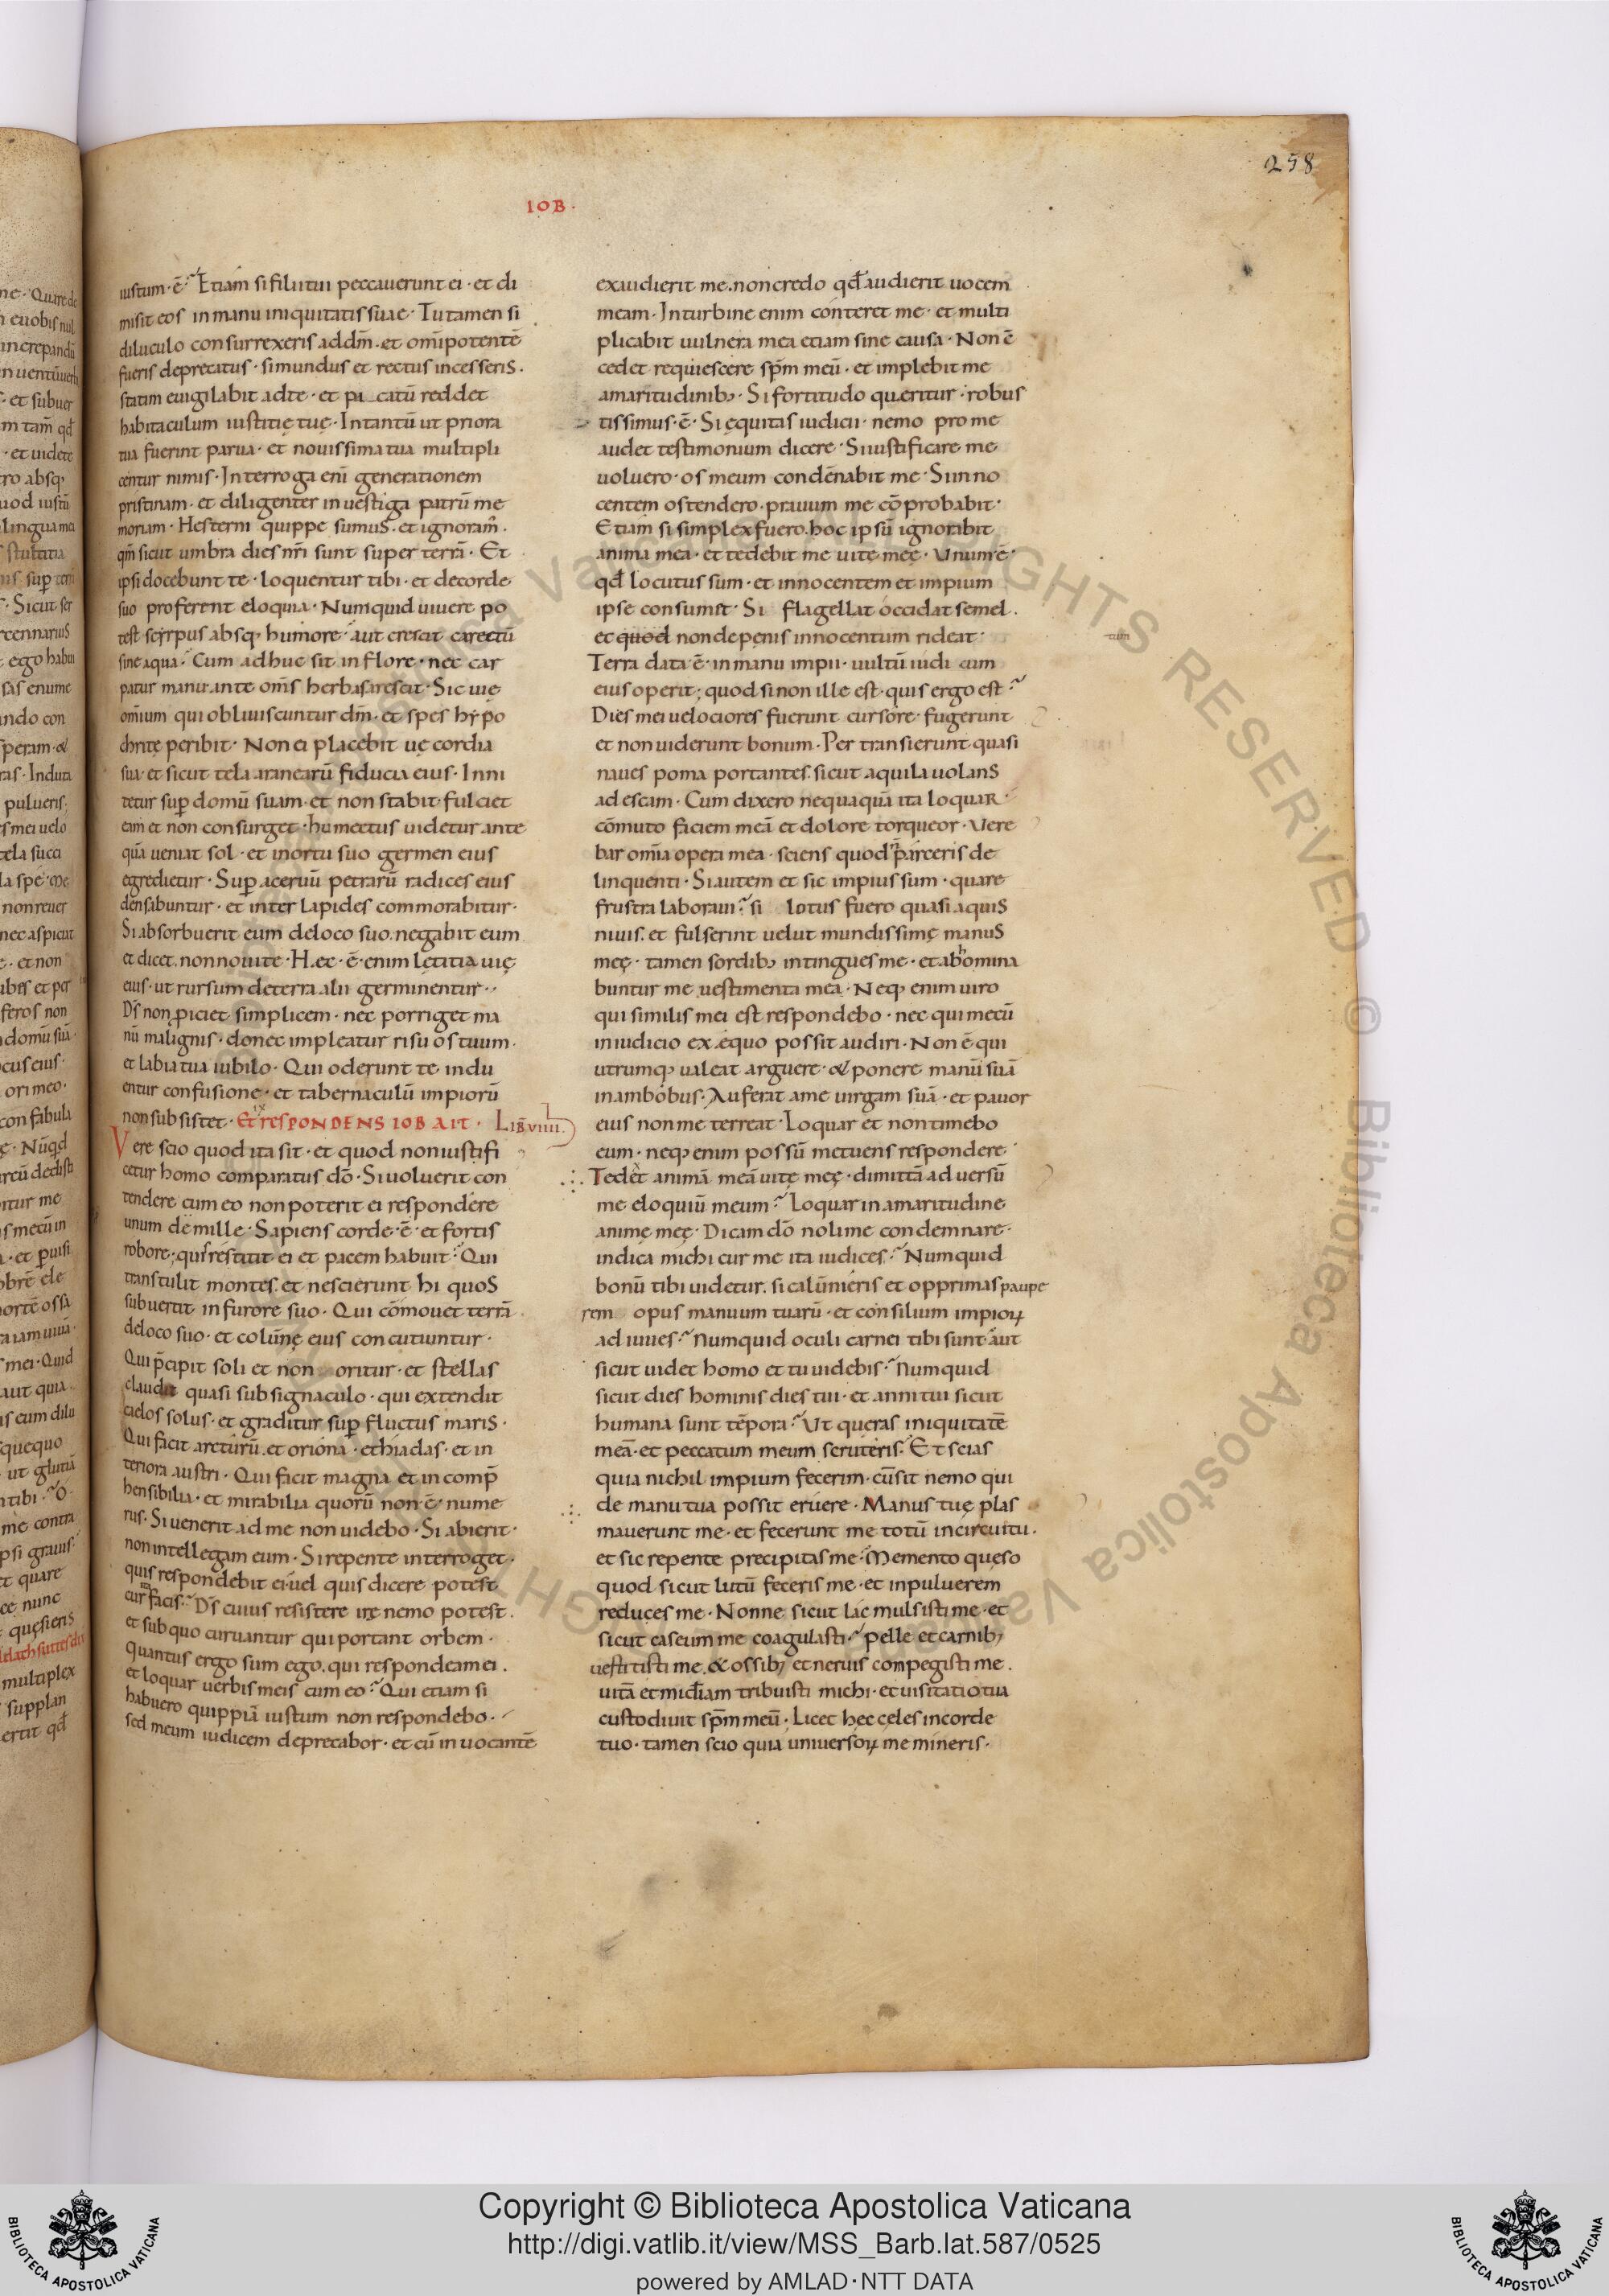 258
IOB·
iustum·ē·Etiam si filii tui peccauerunt ei·et di
misit eos in manu iniquitatis suae·Tu tamen si
diluculo consurrexeris ad dm̄·et om̄ipotentē
fueris deprecatus·si mundus et rectus incesseris·
statim euigilabit ad te·et pacatū reddet
habitaculum iustitię tuę·In tantū ut priora
tua fuerint parua·et nouissima tua multipli
centur nimis·Interroga eni generationem
pristinam·et diligenter inuestiga patrū me
moriam·Hesterni quippe sumus·et ignoram̄·
qm̄ sicut umbra dies nr̄i sunt super terrā·Et
ipsi docebunt te·loquentur tibi·et de corde
suo proferent eloquia·Numquid uiuere po
test scyrpus absq; humore·aut crescit carectū
sine aqua·Cum adhuc sit in flore·nec car
patur manu·ante om̄s herbas arescit·Sic uię
om̄ium qui obliuiscuntur dm̄·et spes hypo
chrite peribit·Non ei placebit uęcordia
sua·et sicut tela aranearū fiducia eius·Inni
tetur sup̄ domū suam·et non stabit·fulciet
eam et non consurget·humectus uidetur ante
quā ueniat sol·et in ortu suo germen eius
egredietur·Sup̄ aceruū petrarū radices eius
densabuntur·et inter lapides commorabitur·
Si absorbuerit eum de loco suo·negabit eum
et dicet·non noui te·Hęc·ē·enim lętitia uię
eius·ut rursum de terra alii germinentur·
Ds̄ non ꝓiciet simplicem·nec porriget ma
nū malignis·donec impleatur risu os tuum·
et labia tua iubilo·Qui oderunt te indu
entur confusione·et tabernaculū impiorū
non subsistet·Et RESPONDENS IOB AIT· LIB̄ VIIII·
Vere scio quod ita sit·et quod non iustifi
cetur homo comparatus dō·Si uoluerit con
tendere cum eo non poterit ei respondere
unum de mille·Sapiens corde·ē·et fortis
robore;quis restitit ei et pacem habuit·Qui
transtulit montes·et nescierunt hi quos
subuertit in furore suo·Qui cōmouet terrā
de loco suo·et colūnę eius concutiuntur·
Qui p̄cipit soli et non oritur·et stellas
claudit quasi sub signaculo·qui extendit
cielos solus·et graditur sup̄ fluctus maris·
Qui facit arcturū·et oriona·et hiadas·et in
teriora austri·Qui facit magna et incomp̄
hensibilia·et mirabilia quorū non·ē·nume
rus·Si uenerit ad me non uidebo·Si abierit·
non intellegam eum·Si repente interroget·
quis respondebit ei·uel quis dicere potest
cur facis·Ds̄ cuius resistere irę nemo potest·
et sub quo curuantur qui portant orbem·
Quantus ergo sum ego·qui respondeam ei·
et loquar uerbis meis cum eo·Qui etiam si
habuero quippiā iustum non respondebo·
sed meum iudicem deprecabor·et cū inuocantē
exaudierit me·non credo qd̄ audierit uocem
meam·In turbine enim conteret me·et multi
plicabit uulnera mea etiam sine causa·Non cē
cedet requiescere sp̄m meū·et implebit me
amaritudinib;·Si fortitudo quęritur·robus
tissimus·ē·Si ęquitas iudicii·nemo pro me
audet testimonium dicere·Si iustificare me
uoluero·os meum condēnabit me·Si inno
centem ostendero·prauum me cōprobabit·
Etiam si simplex fuero·hoc ipsū ignorabit
anima mea·et tedebit me uitę meę·Vnum ē·
qd̄ locutus sum·et innocentem et impium
ipse consumit·Si flagellat occidat semel·
et quod non de pęnis innocentum rideat·
Terra data·ē·in manu impii·uultū iudicum
eius operit;quod si non ille est·quis ergo est
Dies mei uelociores fuerunt cursore·fugerunt
et non uiderunt bonum·Pertransierunt quasi
naues poma portantes·sicut aquila uolans
ad escam·Cum dixero nequaquā ita loquar·
cōmuto faciem meā et dolore torqueor·Vere
bar om̄ia opera mea·sciens quod parceris de
linquenti·Si autem et sic impius sum·quare
frustra laboraui·si lotus fuero quasi aquis
niuis·et fulserint uelut mundissimę manus
meę·tamen sordib; intingues me·et abhomina
buntur me uestimenta mea·Neq; enim uiro
qui similis mei est respondebo·nec qui mecū
in iudicio ex ęquo possit audiri·Non ē qui
utrumq; ualeat arguere·& ponere manū suā
in ambobus·Auferat a me uirgam suā·et pauor
eius non me terreat·Loquar et non timebo
eum·neq; enim possū metuens respondere·
Tedet animā meā uitę meę·dimittā aduersū
me eloquiū meum·Loquar in amaritudine
animę meę·Dicam dō noli me condemnare·
indica michi cur me ita iudices·Numquid
bonū tibi uidetur·si calūnieris et opprimas paupe
rem opus manuum tuarū·et consilium impioꝝ
adiuues·Numquid oculi carnei tibi sunt·aut
sicut uidet homo et tu uidebis·Numquid
sicut dies hominis dies tui·et anni tui sicut
humana sunt tēpora·Vt quęras iniquitatē
meā·et peccatum meum scruteris·Et scias
quia nichil impium fecerim·cū sit nemo qui
de manu tua possit eruere·Manus tuę plas
mauerunt me·et fecerunt me totū in circuitu·
et sic repente precipitas me·Memento quęso
quod sicut lutū feceris me·et in puluerem
reduces me·Nonne sicut lac mulsisti me·et
sicut caseum me coagulasti·pelle et carnib;
uestitisti me·& ossib; et neruis compegisti me·
uitā et mīdiam tribuisti michi·et uisitatio tua
custodiuit sp̄m meū·Licet hęc celes in corde
tuo·tamen scio quia uniuersoꝝ memineris·
Copyright © Biblioteca Apostolica Vaticana
http://digi.vatlib.it/view/MSS_Barb.lat.587/0525
powered by AMLAD·NTT DATA
BIBLIOTECA APOSTOLICA VATICANA
BIBLIOTECA APOSTOLICA VATICANA